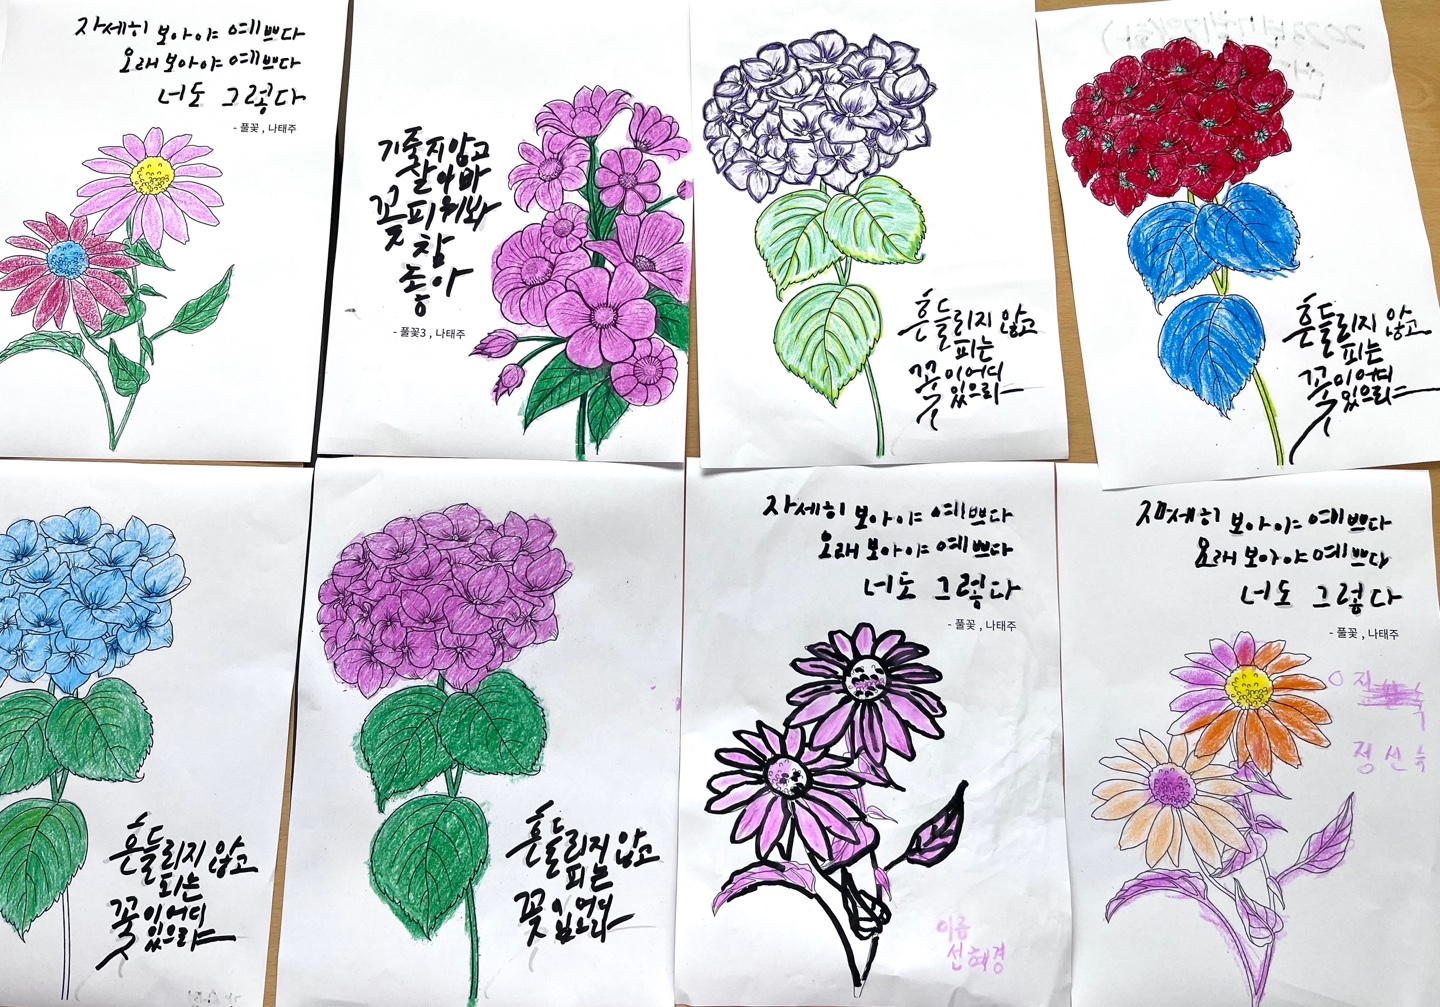 자세히 보아야 예쁘다
오래 보아야 예쁘다
너도 그렇다
- 풀꽃 , 나태주
기죽지 않고
살아봐
꽃피워봐
참
좋아
- 풀꽃3 , 나태주
흔들리지 않고
피는
꽃이 어디
있으랴
흔들리지 않고
피는
꽃이 어디
있으랴
흔들리지 않고
피는
꽃이 어디
있으랴
흔들리지 않고
피는
꽃이 어디
있으랴
자세히 보아야 예쁘다
오래 보아야 예쁘다
너도 그렇다
- 풀꽃 , 나태주
이름
선혜경
자세히 보아야 예쁘다
오래 보아야 예쁘다
너도 그렇다
- 풀꽃 , 나태주
정신숙